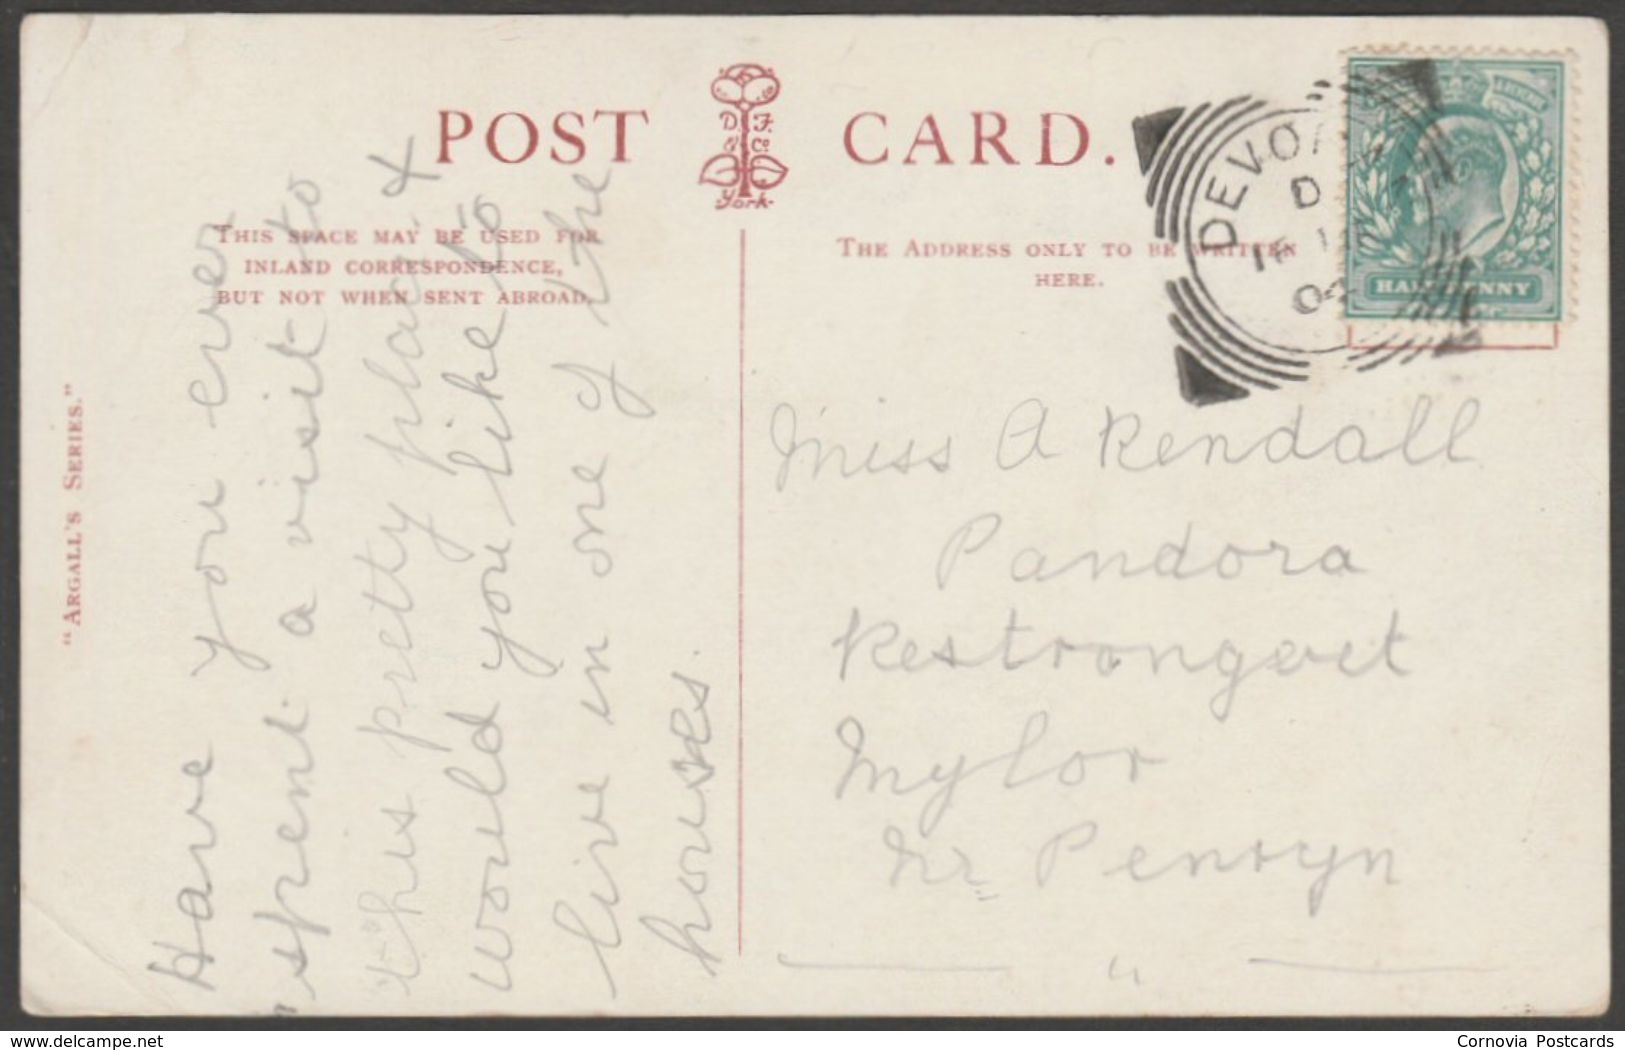 POST CARD.
D. F.
& Co
York
THIS SPACE MAY BE USED FOR
INLAND CORRESPONDENCE,
BUT NOT WHEN SENT ABROAD.
THE ADDRESS ONLY TO BE WRITTEN
HERE.
"ARGALL'S SERIES."
Have you ever
spent a visit to
this pretty place &
would you like to
live in one of the
houses.
DEVO
D
04
HALFPENNY
Miss A Rendall
Pandora
Restronguet
Mylor
Nr Penryn
delcampe.net
Cornovia Postcards